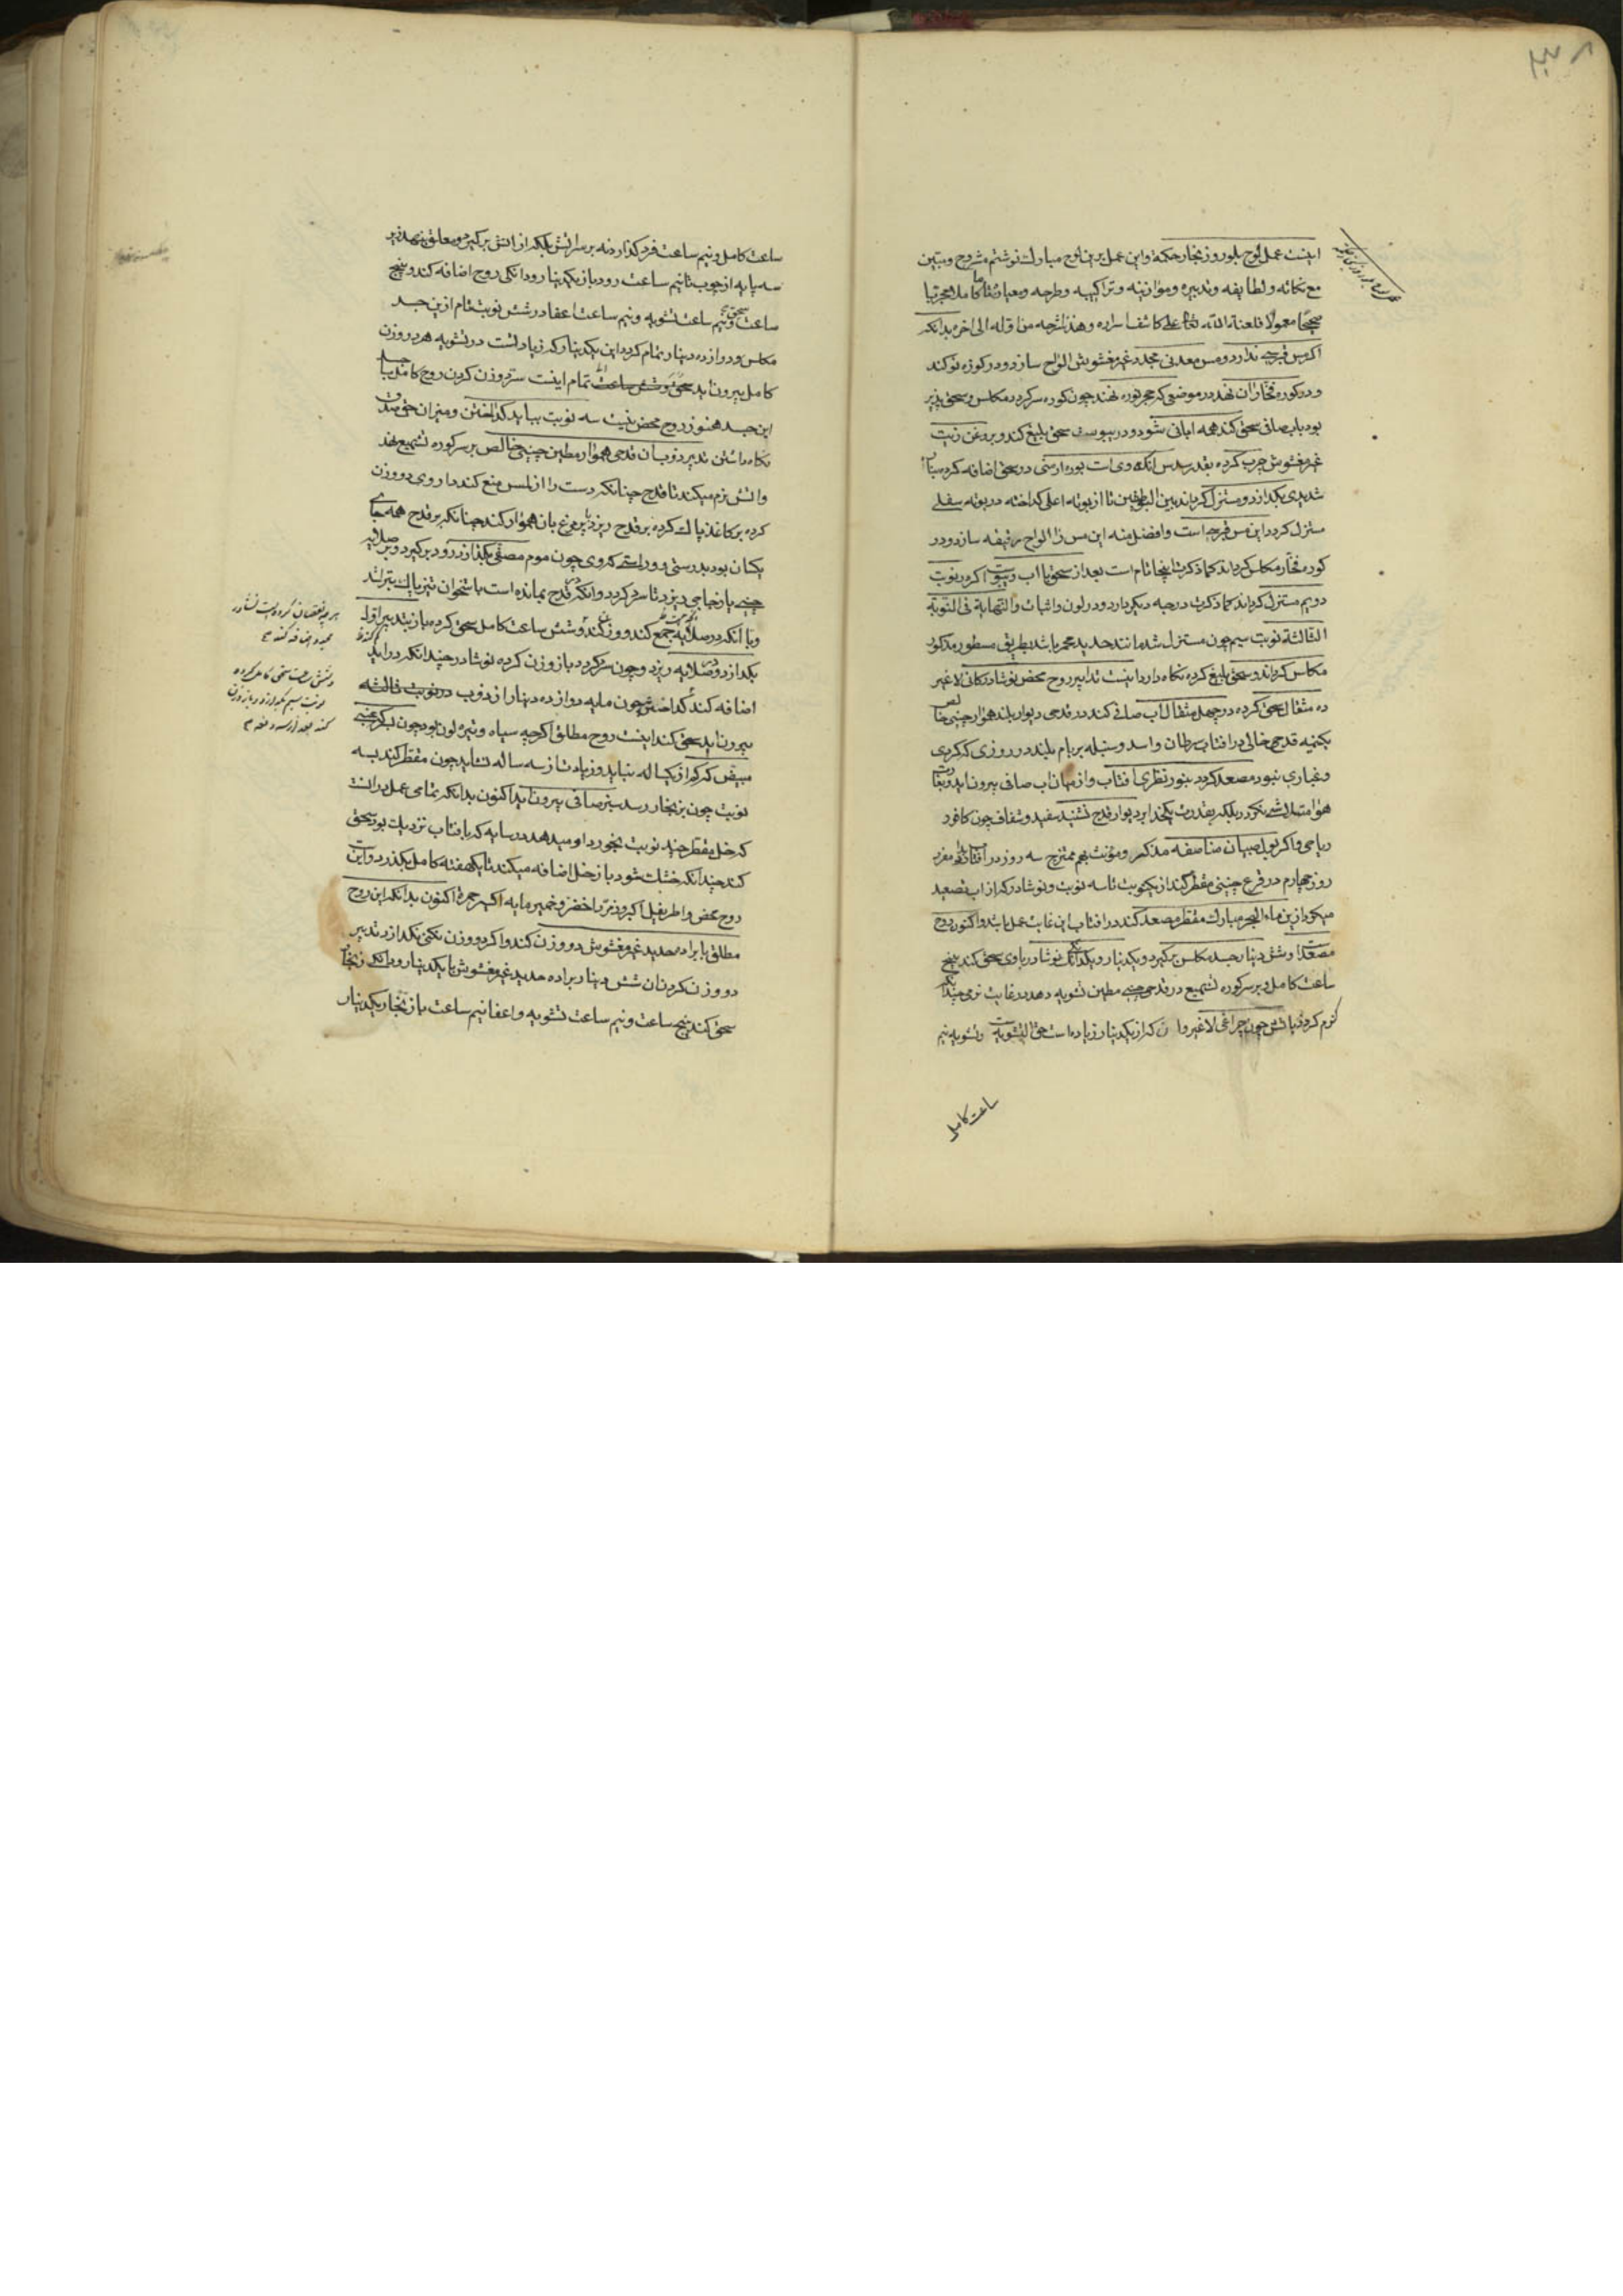 اینست عمل لوح بلور و زنجار حکمة واین عمل برین لوح مبارک نوشتم مشروح ومبین
مع نکاته ولطایفه وتدبیره وموازینه وتراکیبه وطرحه ومعیاره تماما کاملا مجربا
صحیحا معمولا فلعنة الله تعالی علی کاشف اسراره وهذا شرحه من اوله الی اخره بدانکه
اکر مس قبرسی ندارد ومس معدنی مجدد غیر مغشوش الواح سازد ودر کوزه نو کند
ودر کوره فخاران نهد در موضعی که حجر نوره نهند چون کوره سر کردد مکلس وسحق پذیر
بود باب صافی سحق کند همه ابانی شود ودر یبوست سحق بلیغ کند وبروغن زیت
غیر مغشوش چرب کرده بقدر سدس انکه وی است بوره ارمنی در سحق اضافه کرده بنار
شدیدی بکدازد ومستنزل کرداند بین البوطقین تا از بوته اعلی کداخته در بوته سفلی
مستنزل کردد این مس قبرسی است وافضل منه این مس را الواح رقیقه سازد ودر
کوره فخار مکلس کرداند کما ذکرت اینجا تمام است بعد از سحق باب وزیت اکر در نوبت
دویم مستنزل کرداند کما ذکرت درجه دیکر دارد در لون واثبات والنهایة فی النوبة
الثالثة نوبت سیم چون مستنزل شد مانند حدید محمر باشد بطریق مسطور مذکور
مکلس کرداند وسحق بلیغ کرده نکاه دارد اینست تدابیر روح محض نوشادر کانی لاغیر
ده مثقال سحق کرده در چهل مثقال آب صافی کند در قدحی دیوار بلند هموار چینی خالص
یکنیمه قدح خالی در افتاب سرطان واسد وسنبله بر بام بلند در روزی که کردی
وغباری نبود مصعد کردد بنور نظری افتاب واز میان اب صافی بیرون اید
هوا متلاشی نکردد بلکه بقدرت یکخدا بر دیوار قدح نشیند سفید وشفاف چون کافور
ریاحی واکر بول صبیان مناصفه مذکر ومؤنث بهم ممتزج سه روز در افتاب
روز چهارم در قرع چینی مقطر کند از یکنوبت تا سه نوبت ونوشادر که از اب تصعید
میکرد ازین ماء الحجر مبارک مقطر مصعد کند در افتاب این غایت عمل باشد واکنون روح
مصعد او شش دینار جسد مکلس برکیرد ویکدینار ویکدانک نوشادر باوی سحق کند پنج
ساعت کامل وبر سر کوره تشمیع در قدحی چینی مطین تشویه دهد در غایت نرمی چندانکه
کرم کردد باتش چون چراغی لاغیر وان که از یکدینار زیاده است حق التشویه وتشویه نیم
ساعت کامل
ساعت کامل ونیم ساعت فرو کذارد نه بر سر اتش بلکه از اتش برکیرد ومعلق بنهد بر
سه پایه از چوب تا نیم ساعت رود باز یکدینار ودانکی روح اضافه کند وپنج
ساعت سحق ونیم ساعت تشویه ونیم ساعت اعفا در شش نوبت تمام ازین جسد
مکلس ودوازده دینار تمام کردد این یکدینار که زیاد است در تشویه هر دو وزن
کامل بیرون اید تمام اینست ستر دو وزن کردن روح کامل با جسد
این جسد هنوز روح محض نیست سه نوبت بباید کداختن ومیزان حق صدق
نکاه داشتن تدبیر ذوبان قدحی هموار مطین چینی خالص بر سر کوره تشمیع نهد
واتش نرم میکند تا قدح چنانکه دست را از لمس منع کند داروی دو وزن
کرده بر کاغذ پاک کرده بر قدح ریزد با پر مرغ بان هموار کند چنانکه بر قدح همه جای
یکسان بود بدرستی وراستی که وی چون موم مصفی بکدازد زود برکیرد وبر صلایه
چینی یا زجاجی ریزد تا سرد کردد وانکه در قدح بمانده است باستخوان تیز پاک بتراشد
وبا انکه در صلایه جمع کند ووزن کند وشش ساعت کامل سحق کرده باز بتدبیر اول
بکدازد ودر صلایه ریزد وچون سرد کردد باز وزن کرده نوشادر چندانکه در اید
اضافه کند کداختن چون مایه دوازده دینار از ذوب در نوبت ثالثه
بیرون اید سحق کند اینست روح مطلق اکرچه سیاه وتیره لون بود چون سرکه عنبی
مبیض که کم از یکساله نباید وزیادت از سه ساله نشاید چون مقطر کند بسه
نوبت چون بزنجار رسد سبز صافی بیرون اید اکنون بدانکه تمامی عمل در انست
که خل مقطر چند نوبت بخورد او میدهد در سایه که بافتاب نزدیک بود وسحق
کند چندانکه خشک شود باز خل اضافه میکند تا یکهفته کامل بکذرد واین
روح محض واطریفیل اکبر وزنجار اخضر وخمیر مایه اکسیر حمره اکنون بدانکه این روح
مطلق با براده حدید غیر مغشوش دو وزن کند واکر دو وزن نکنی نکدازد تدبیر
دو وزن کردن ان شش دینار براده حدید غیر مغشوش با یکدینار ودانکی زنجار
سحق کند پنج ساعت ونیم ساعت تشویه واعفا نیم ساعت باز زنجار یکدینار
هر چه نقصان کرده است نوشادر
اضافه کند
وشش ساعت سحق کامل کرده
نوبت سیم بکدازد وباز وزن
کند بعد از سه دفعه